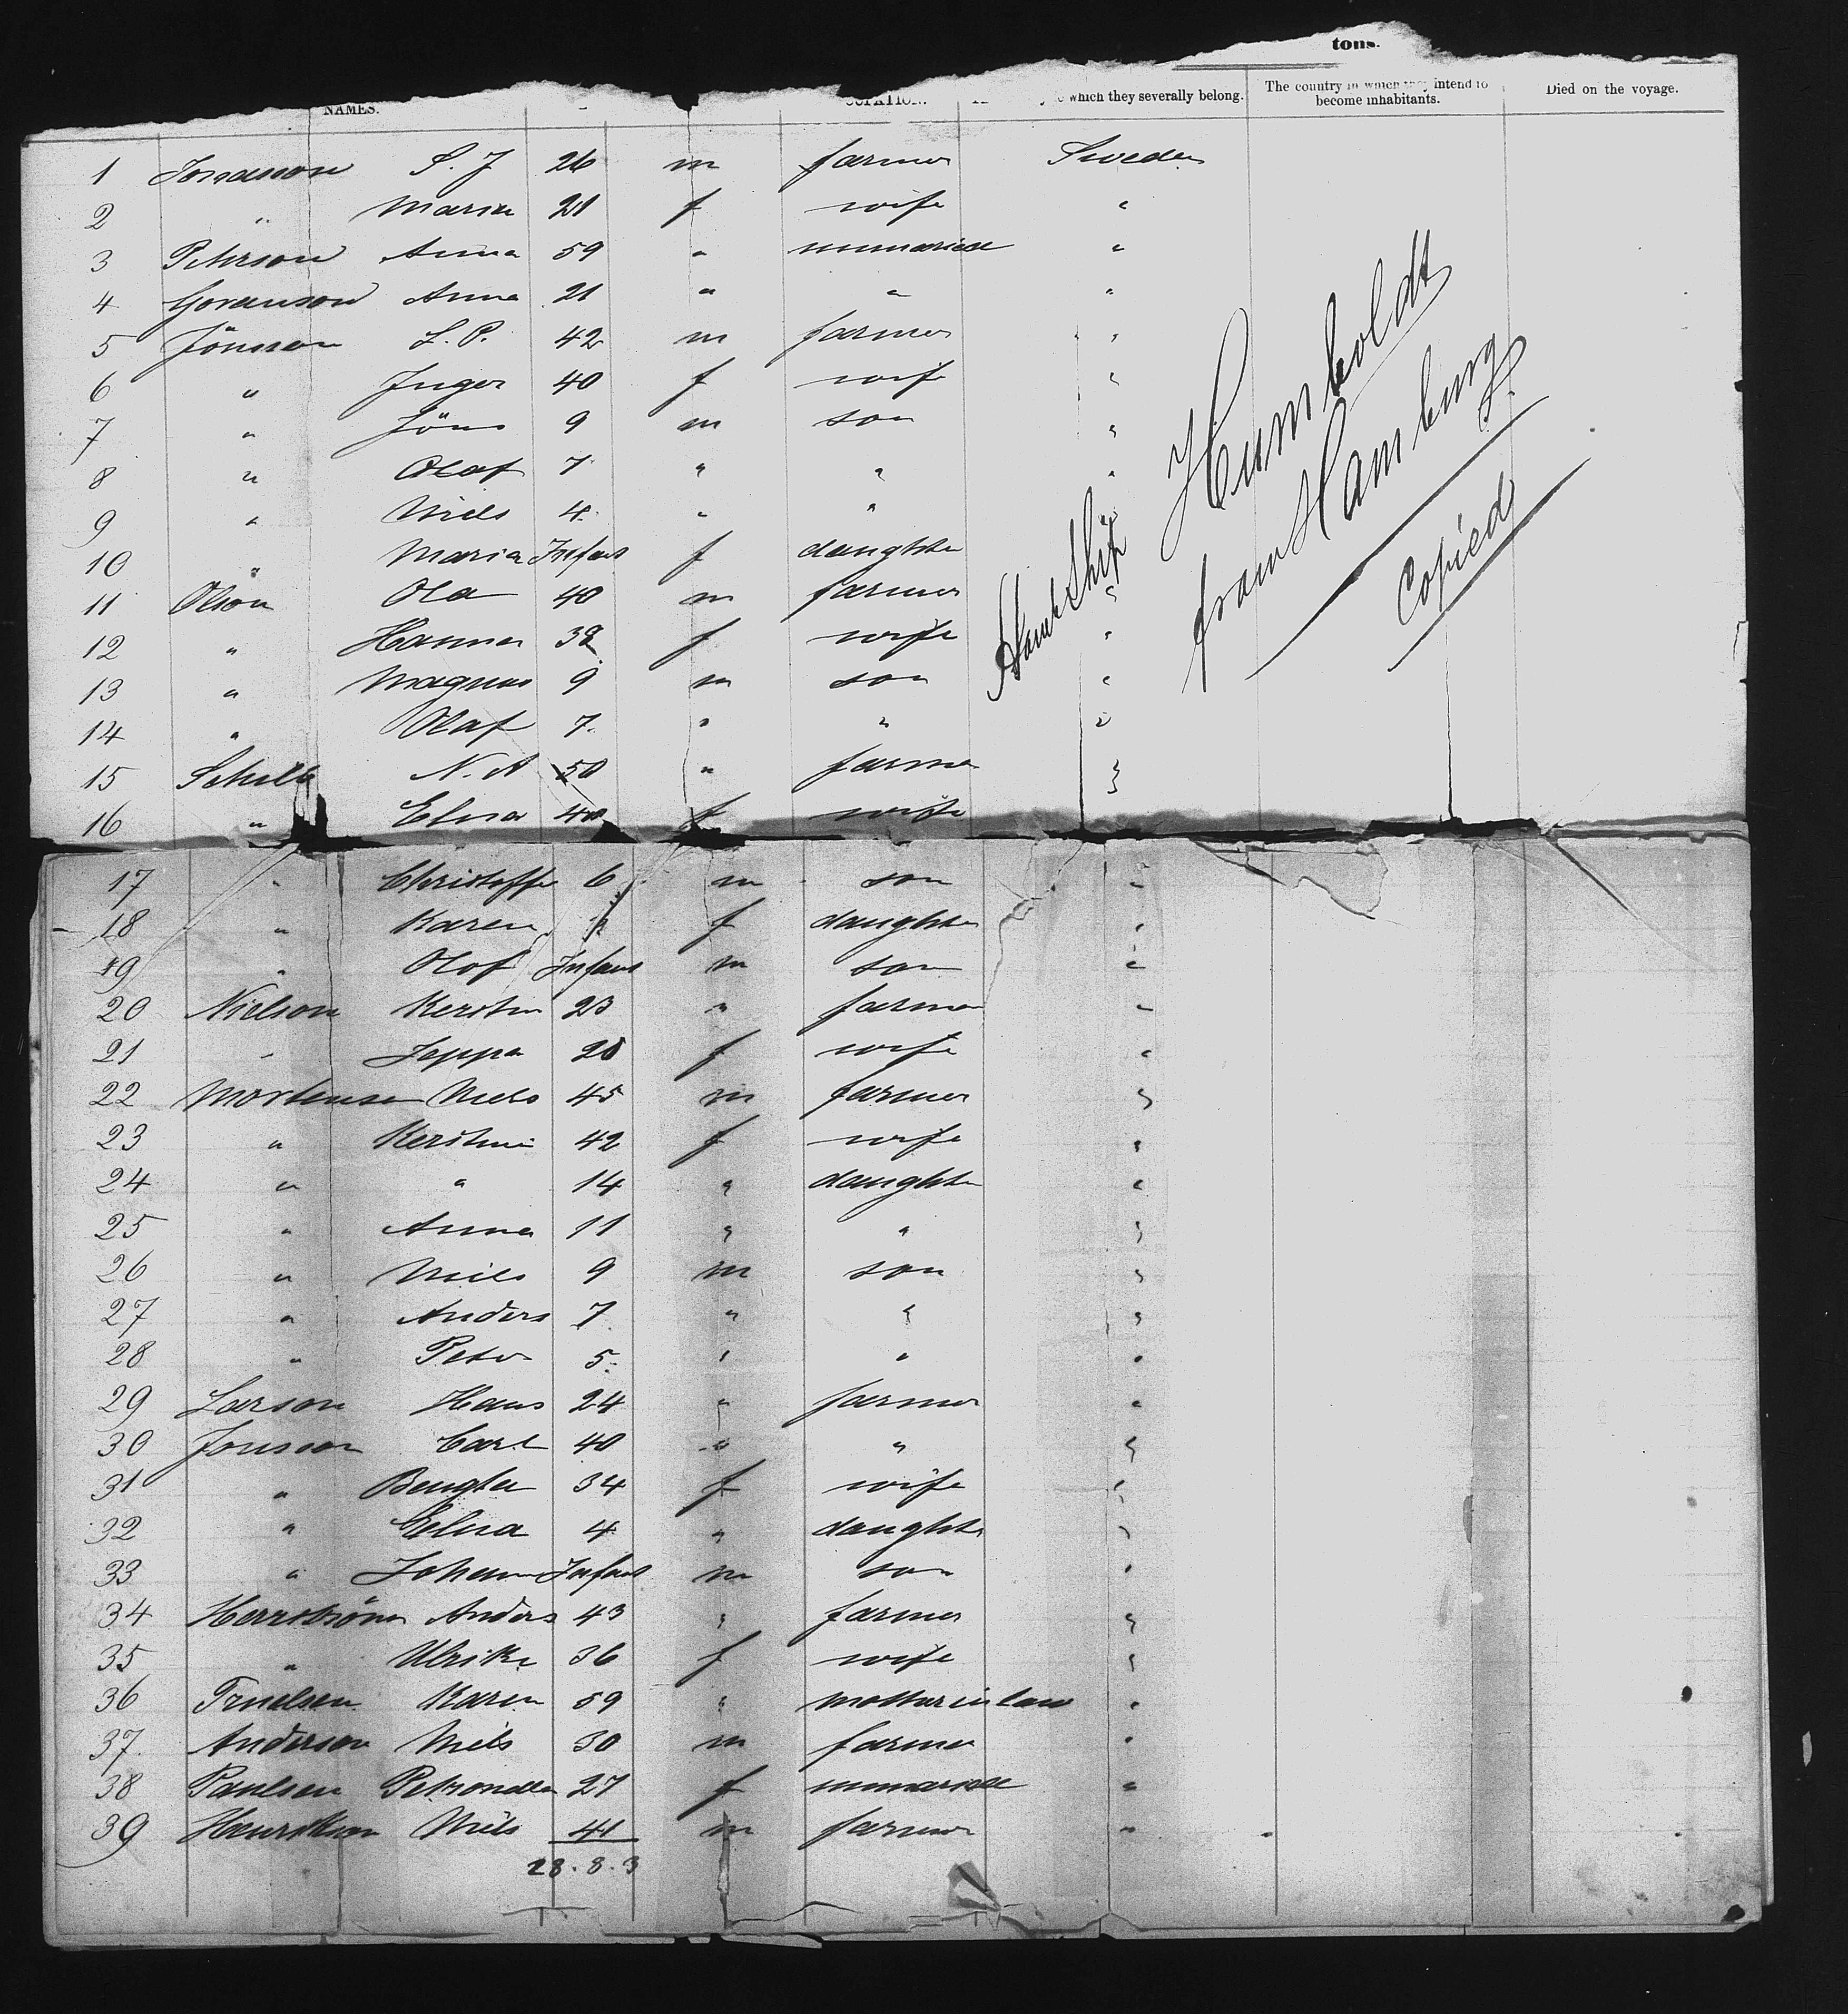 tons.
NAMES. which they severally belong. The country in which they intend to become inhabitants. Died on the voyage.
1 Jonasson S. J 26 m farmer Sweden
2 " Maria 21 f wife "
3 Pehrson Anna 59 " unmaried "
4 Goranson Anna 21 " " "
5 Jönsson L. P. 42 m farmer "
6 " Inger 40 f wife "
7 " Jöns 9 m son "
8 " Olaf 7 " " "
9 " Niels 4 " " "
10 " Maria Infant f daughter
11 Olson Ola 40 m farmer "
12 " Hanna 38 f wife "
13 " Magnus 9 m son "
14 " Olaf 7 " " "
15 N. A 50 " farmer "
16 " Elna 40 f wife
17 " Christoffer 6 m son "
18 " Karen f daughter "
19 " Olof Infant m son "
20 Nielson Kerstin 23 " farmer "
21 " Jeppa 28 f wife "
22 Mortensen Niels 45 m farmer "
23 " Kerstine 42 f wife "
24 " " 14 " daughter "
25 " Anna 11 " " "
26 " Niels 9 m son "
27 " Anders 7 " " "
28 " Peter 5 " " "
29 Larson Hans 24 " farmer "
30 Jonsson Carl 40 " " "
31 " Bengta 34 f wife "
32 " Elna 4 " daughter "
33 " Johann Infant m son "
34 Anders 43 " farmer "
35 " Ulrike 36 f wife "
36 Truelsen Karen 59 " mother in law "
37. Anderson Niels 30 m farmer "
38 Paulsen Petronella 27 f unmaried "
39 Henrikson Niels 41 m farmer "
28 . 8 . 3
Steam Ship Humboldt
from Hamburg
Copied